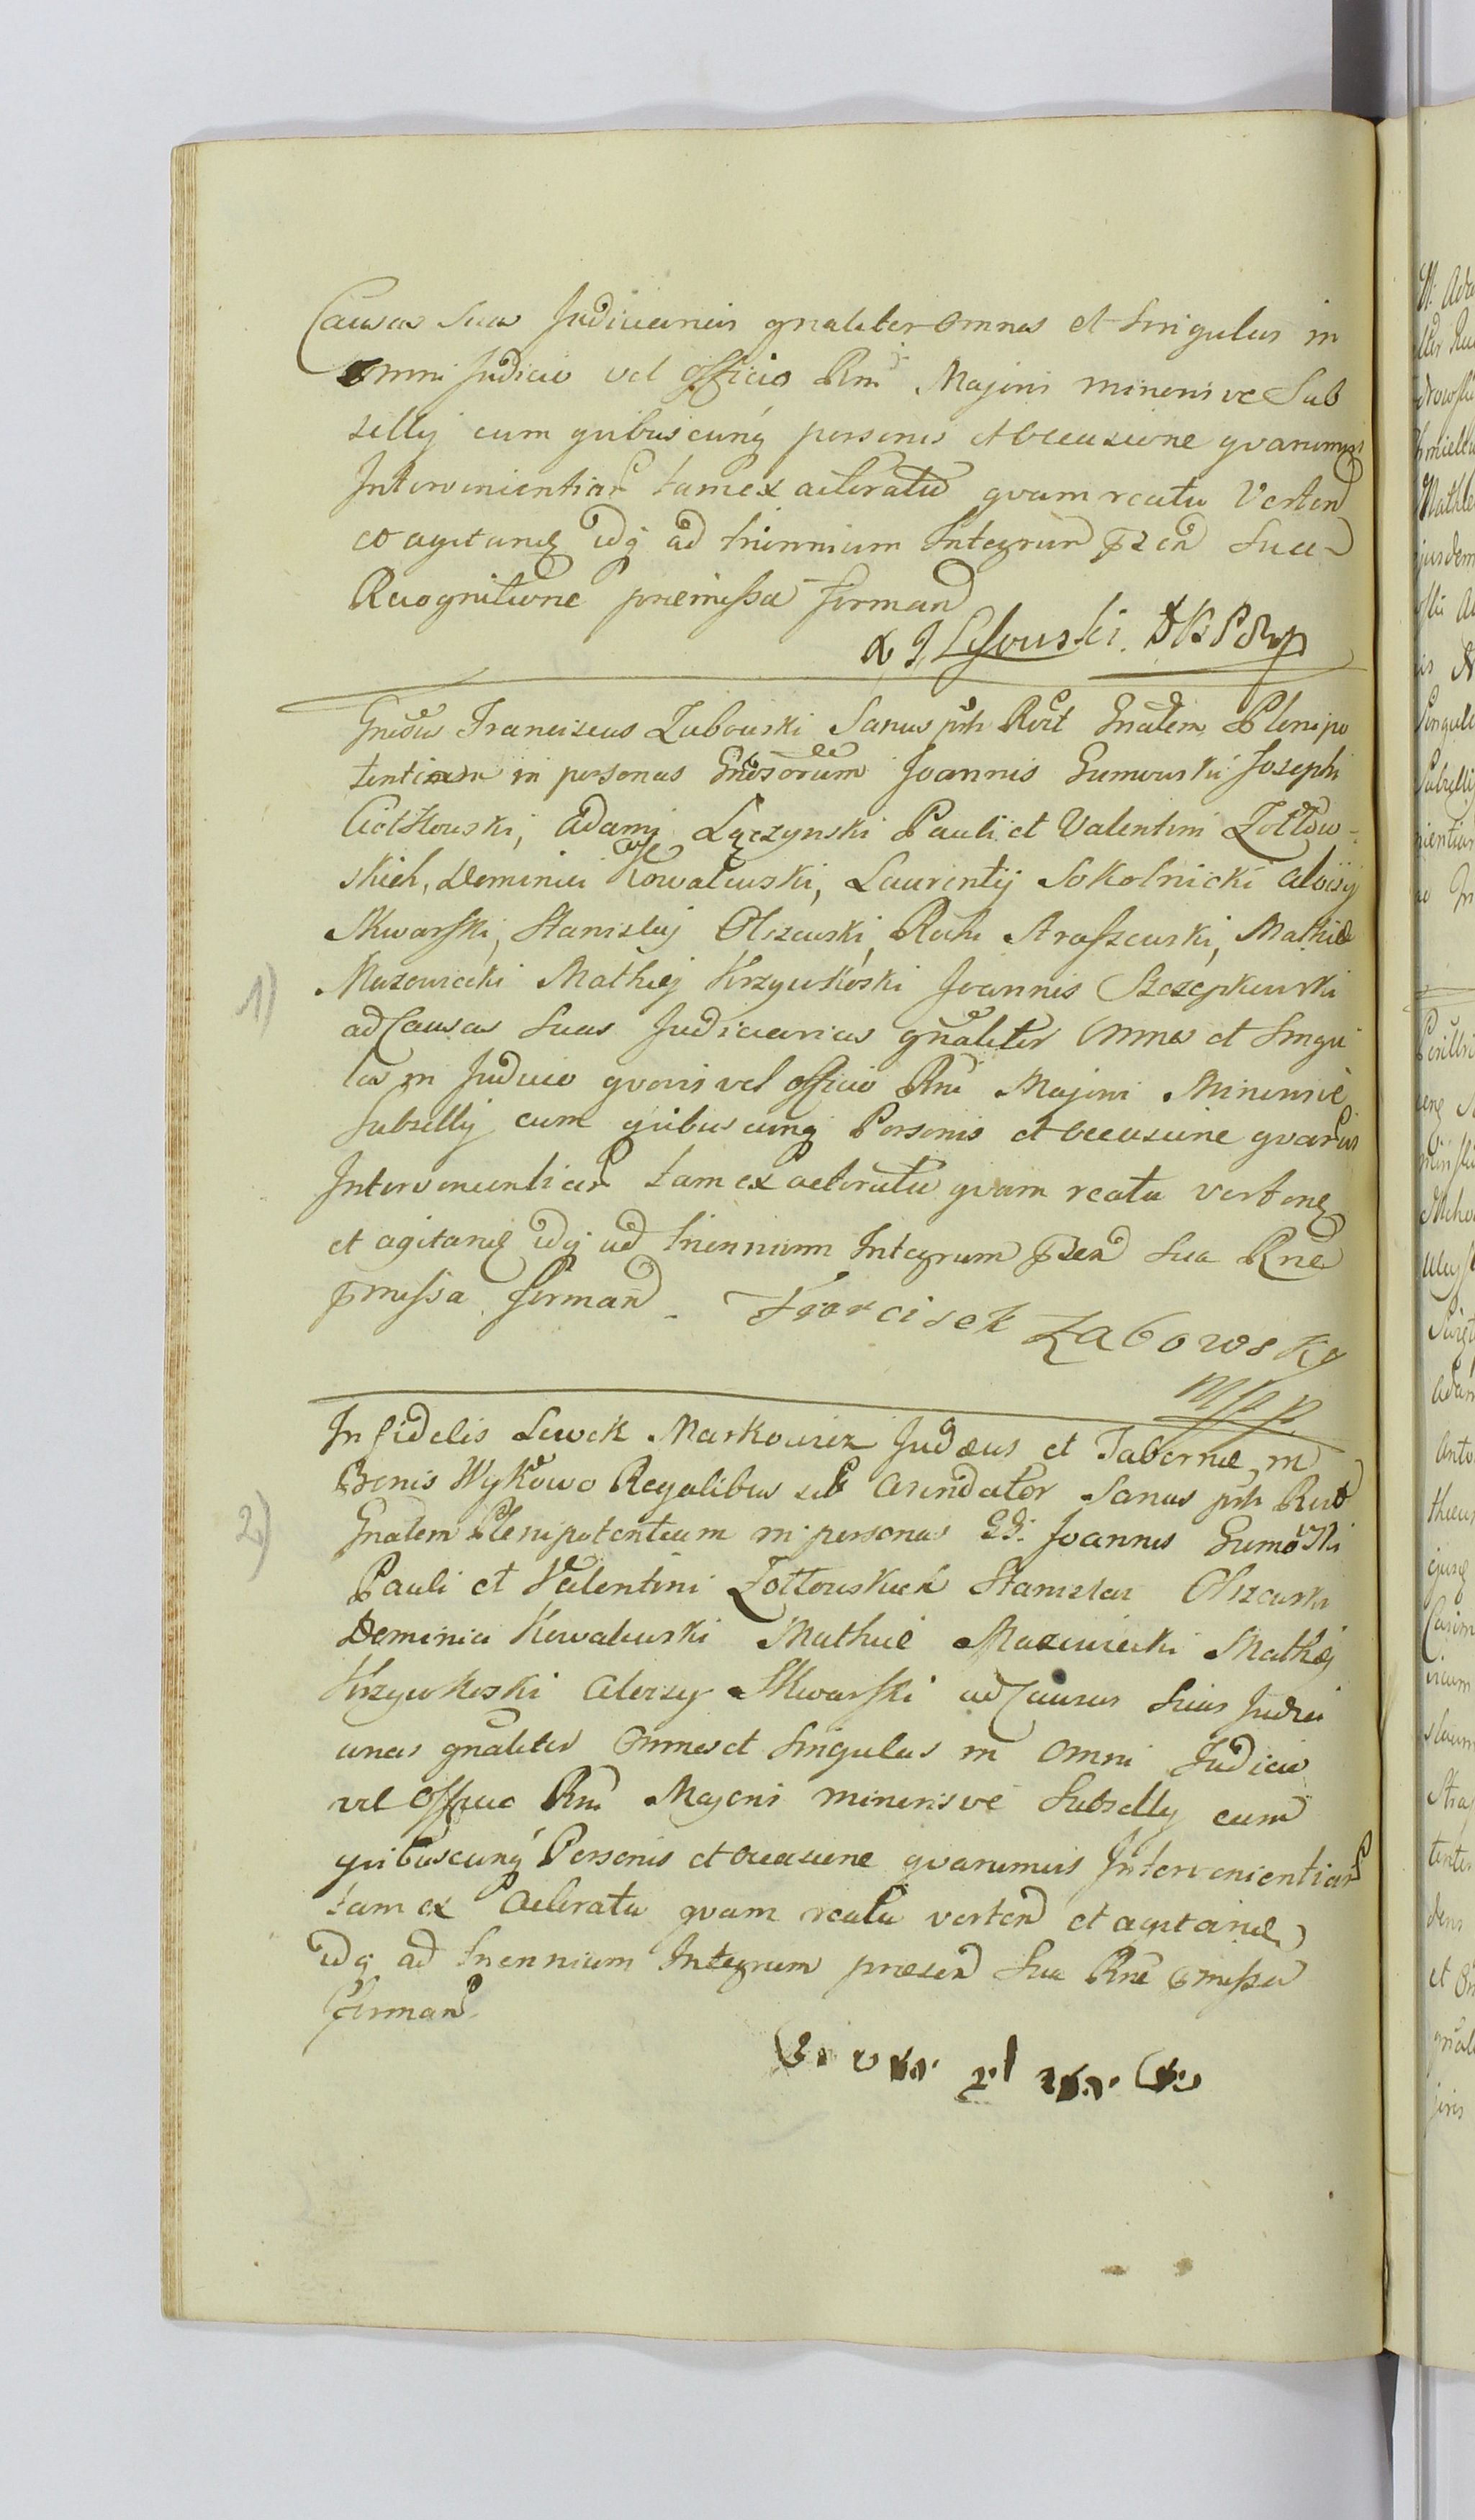 Causas Suas Judiciarias gnaliter omnes et Singulas in
omni Judicio vel Officio Rni Majoris minorisve Sub
sellij cum qvibuscunq personis et occasione qvarumvis
Intervenientiar tam ex actoratu qvam reatu Verten
et agitand idq ad triennium Integrum pzen Sua
Recognitione praemissa forman
Gnsus Franciscus Zabowski Sanus prh Rcit Gnalem Plenipo
tentiam in personas Gnosorum Joannis Gumowski Josephi
Ciołkowski, Adami Łączynski Pauli et Valentini Zołtow-
skich, Dominici Kowalewski, Laurentij Sokolnicki Aloisij
Skwarski, Stanislaj Olszewski, Rochi Straszewski, Mathiæ
Mazowiecki Mathiej Krzywkoski Joannis Szczepkowski
1)
ad Causas Suas Judiciarias gnaliter Omnes et Singu
las in Judicio qvovis vel Officio Rni Majoris Minorisve
Subsellij cum qvibuscunq Personis et occasione qvarvis
Intervenientiar tam ex actoratu qvam reatu verten
et agitand idq ad triennium Integrum pzen Sua Rne
pmissa forman. Francisek Zabowsky
mpp
Infidelis Lewek Markowicz Judæus et Tabernæ in
Bonis Wykowo Regalibus Arendator Sanus prh Rcit
2)
Gnalem Plenipotentiam in personas GG. Joannis Gumoski
Pauli et Valentini Zołtowskich Stanislai Olszewski
Dominici Kowalewski Mathiæ Mazowiecki Mathej
Krzywkoski Aloizy Skwarski ad Causas Suas Judici
arias gnaliter Omnes et Singulas in Omni Judicio
vel Officio Rni Majoris minorisve Subsellij cum
qvibuscunq Personis et occasione qvarumvis Intervenientiar
tam ex Actoratu qvam reatu verten et agitand
idq ad triennium Integrum præzen Sua Rne pmissa
forman